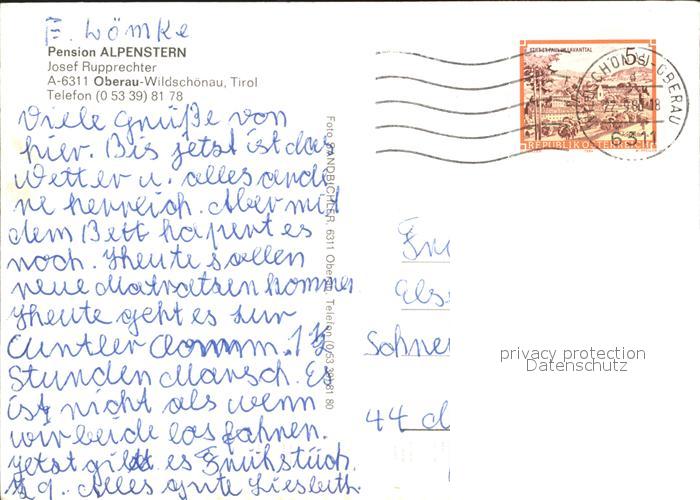 F. Lömke
Pension ALPENSTERN
Josef Rupprechter
A-6311 Oberau-Wildschönau, Tirol
Telefon (0 53 39) 81 78
Viele Grüße von
hier. Bis jetzt ist das
Wetter u. alles ande
re herrlich. Aber mit
dem Bett hapert es
noch. Heute sollen
neue Matratzen kommen
Heute geht es zur
Stunden Marsch. Es
ist nicht als wenn
wir beide losfahren.
Jetzt gibt es Frühstück.
Alles gute Liesbeth.
Foto SANDBICHLER, 6311 Oberau, Telefon (0 53 39) 81 80
STIFT ST. PAUL IM LAVANTTAL
5
REPUBLIK ÖSTERREICH
WILDSCHÖNAU-OBERAU
6311
Els
44
privacy protection
Datenschutz